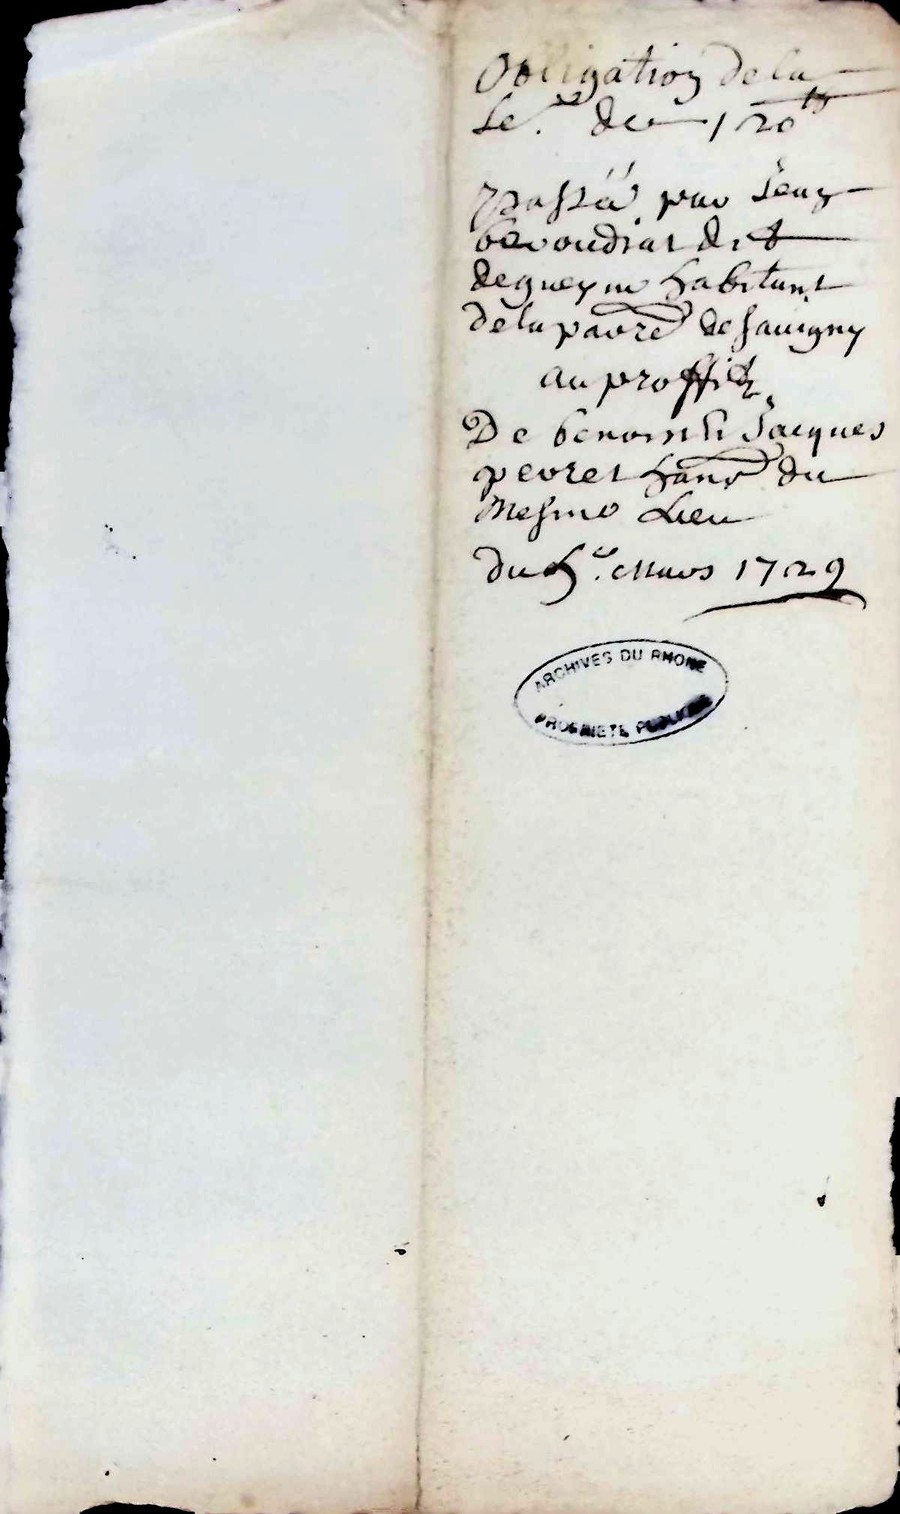 Obligation de la
Se.e de 120 ts
passée par Jean
bevoudiat dit
degueyne habitant
de la parre de Savigny
au proffict
De benoist Jacques
peoret hant du
Mesme Lieu
du 5e. Mars 1729
ARCHIVES DU RHONE
PROPRIETE PUBLIQUE